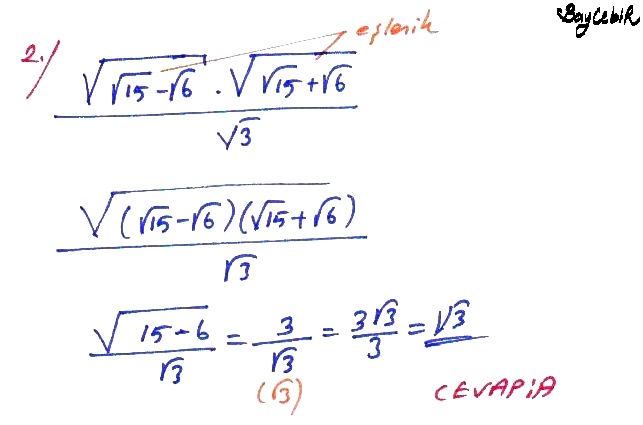 BayCebiR
eşlenik
2./ √(√15-√6) . √(√15+√6) / √3
√((√15-√6)(√15+√6)) / √3
√(15-6) / √3 = 3/√3 = 3√3/3 = √3
(√3)
CEVAP:A